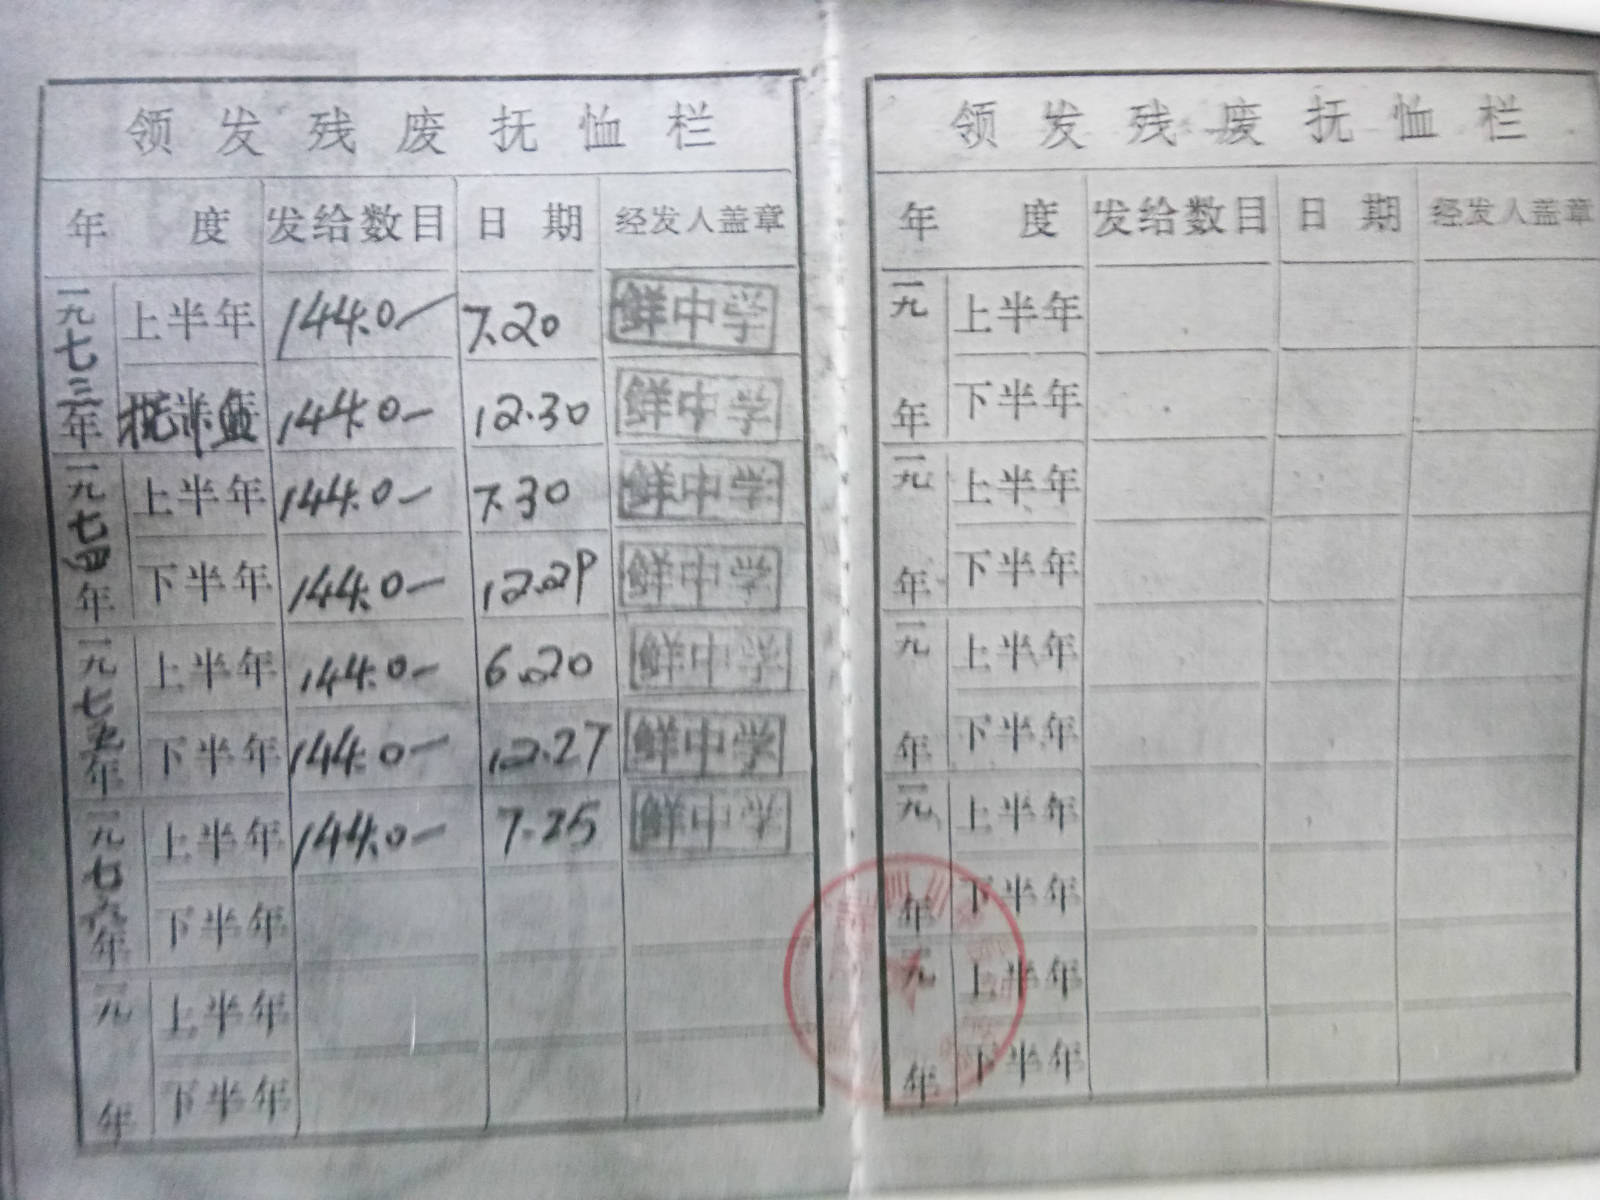 领发残废抚恤栏
年度 发给数目 日期 经发人盖章
一九七三年 上半年 144.0— 7.20 鲜中学
144.0— 12.30 鲜中学
一九七四年 上半年 144.0— 7.30 鲜中学
下半年 144.0— 12.29 鲜中学
一九七五年 上半年 144.0— 6.20 鲜中学
下半年 144.0— 12.27 鲜中学
一九七六年 上半年 144.0— 7.25 鲜中学
下半年
一九 年 上半年
下半年
领发残废抚恤栏
年度 发给数目 日期 经发人盖章
一九 年 上半年
下半年
一九 年 上半年
下半年
一九 年 上半年
下半年
一九 年 上半年
下半年
一九 年 上半年
下半年